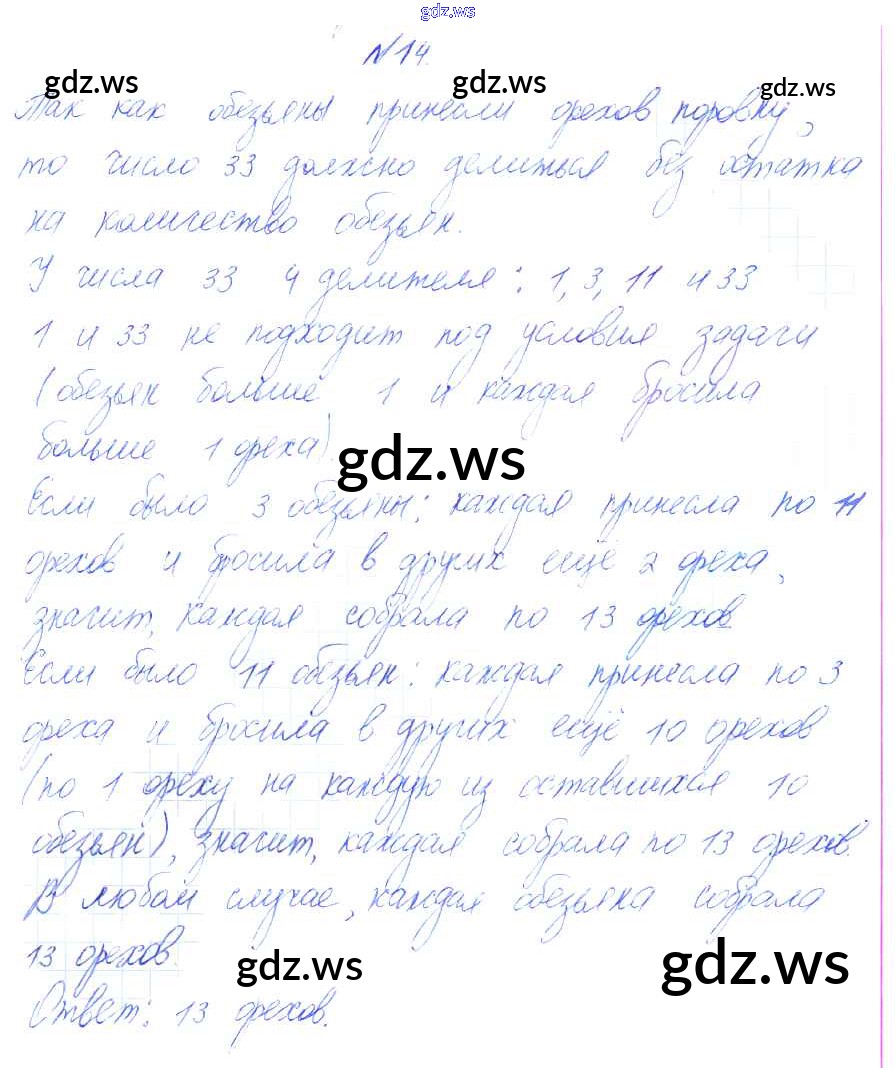 gdz.ws
№14.
gdz.ws gdz.ws gdz.ws
Так как обезьяны принесли орехов поровну,
то число 33 должно делиться без остатка
на количество обезьян.
У числа 33 4 делителя: 1, 3, 11 и 33
1 и 33 не подходит под условия задачи
(обезьян больше 1 и каждая бросила
больше 1 ореха).
gdz.ws
Если было 3 обезьяны: каждая принесла по 11
орехов и бросила в других ещё 2 ореха,
значит, каждая собрала по 13 орехов.
Если было 11 обезьян: каждая принесла по 3
ореха и бросила в других ещё 10 орехов
(по 1 ореху на каждую из оставшихся 10
обезьян), значит, каждая собрала по 13 орехов.
В любом случае, каждая обезьяна собрала
13 орехов.
gdz.ws gdz.ws
Ответ: 13 орехов.